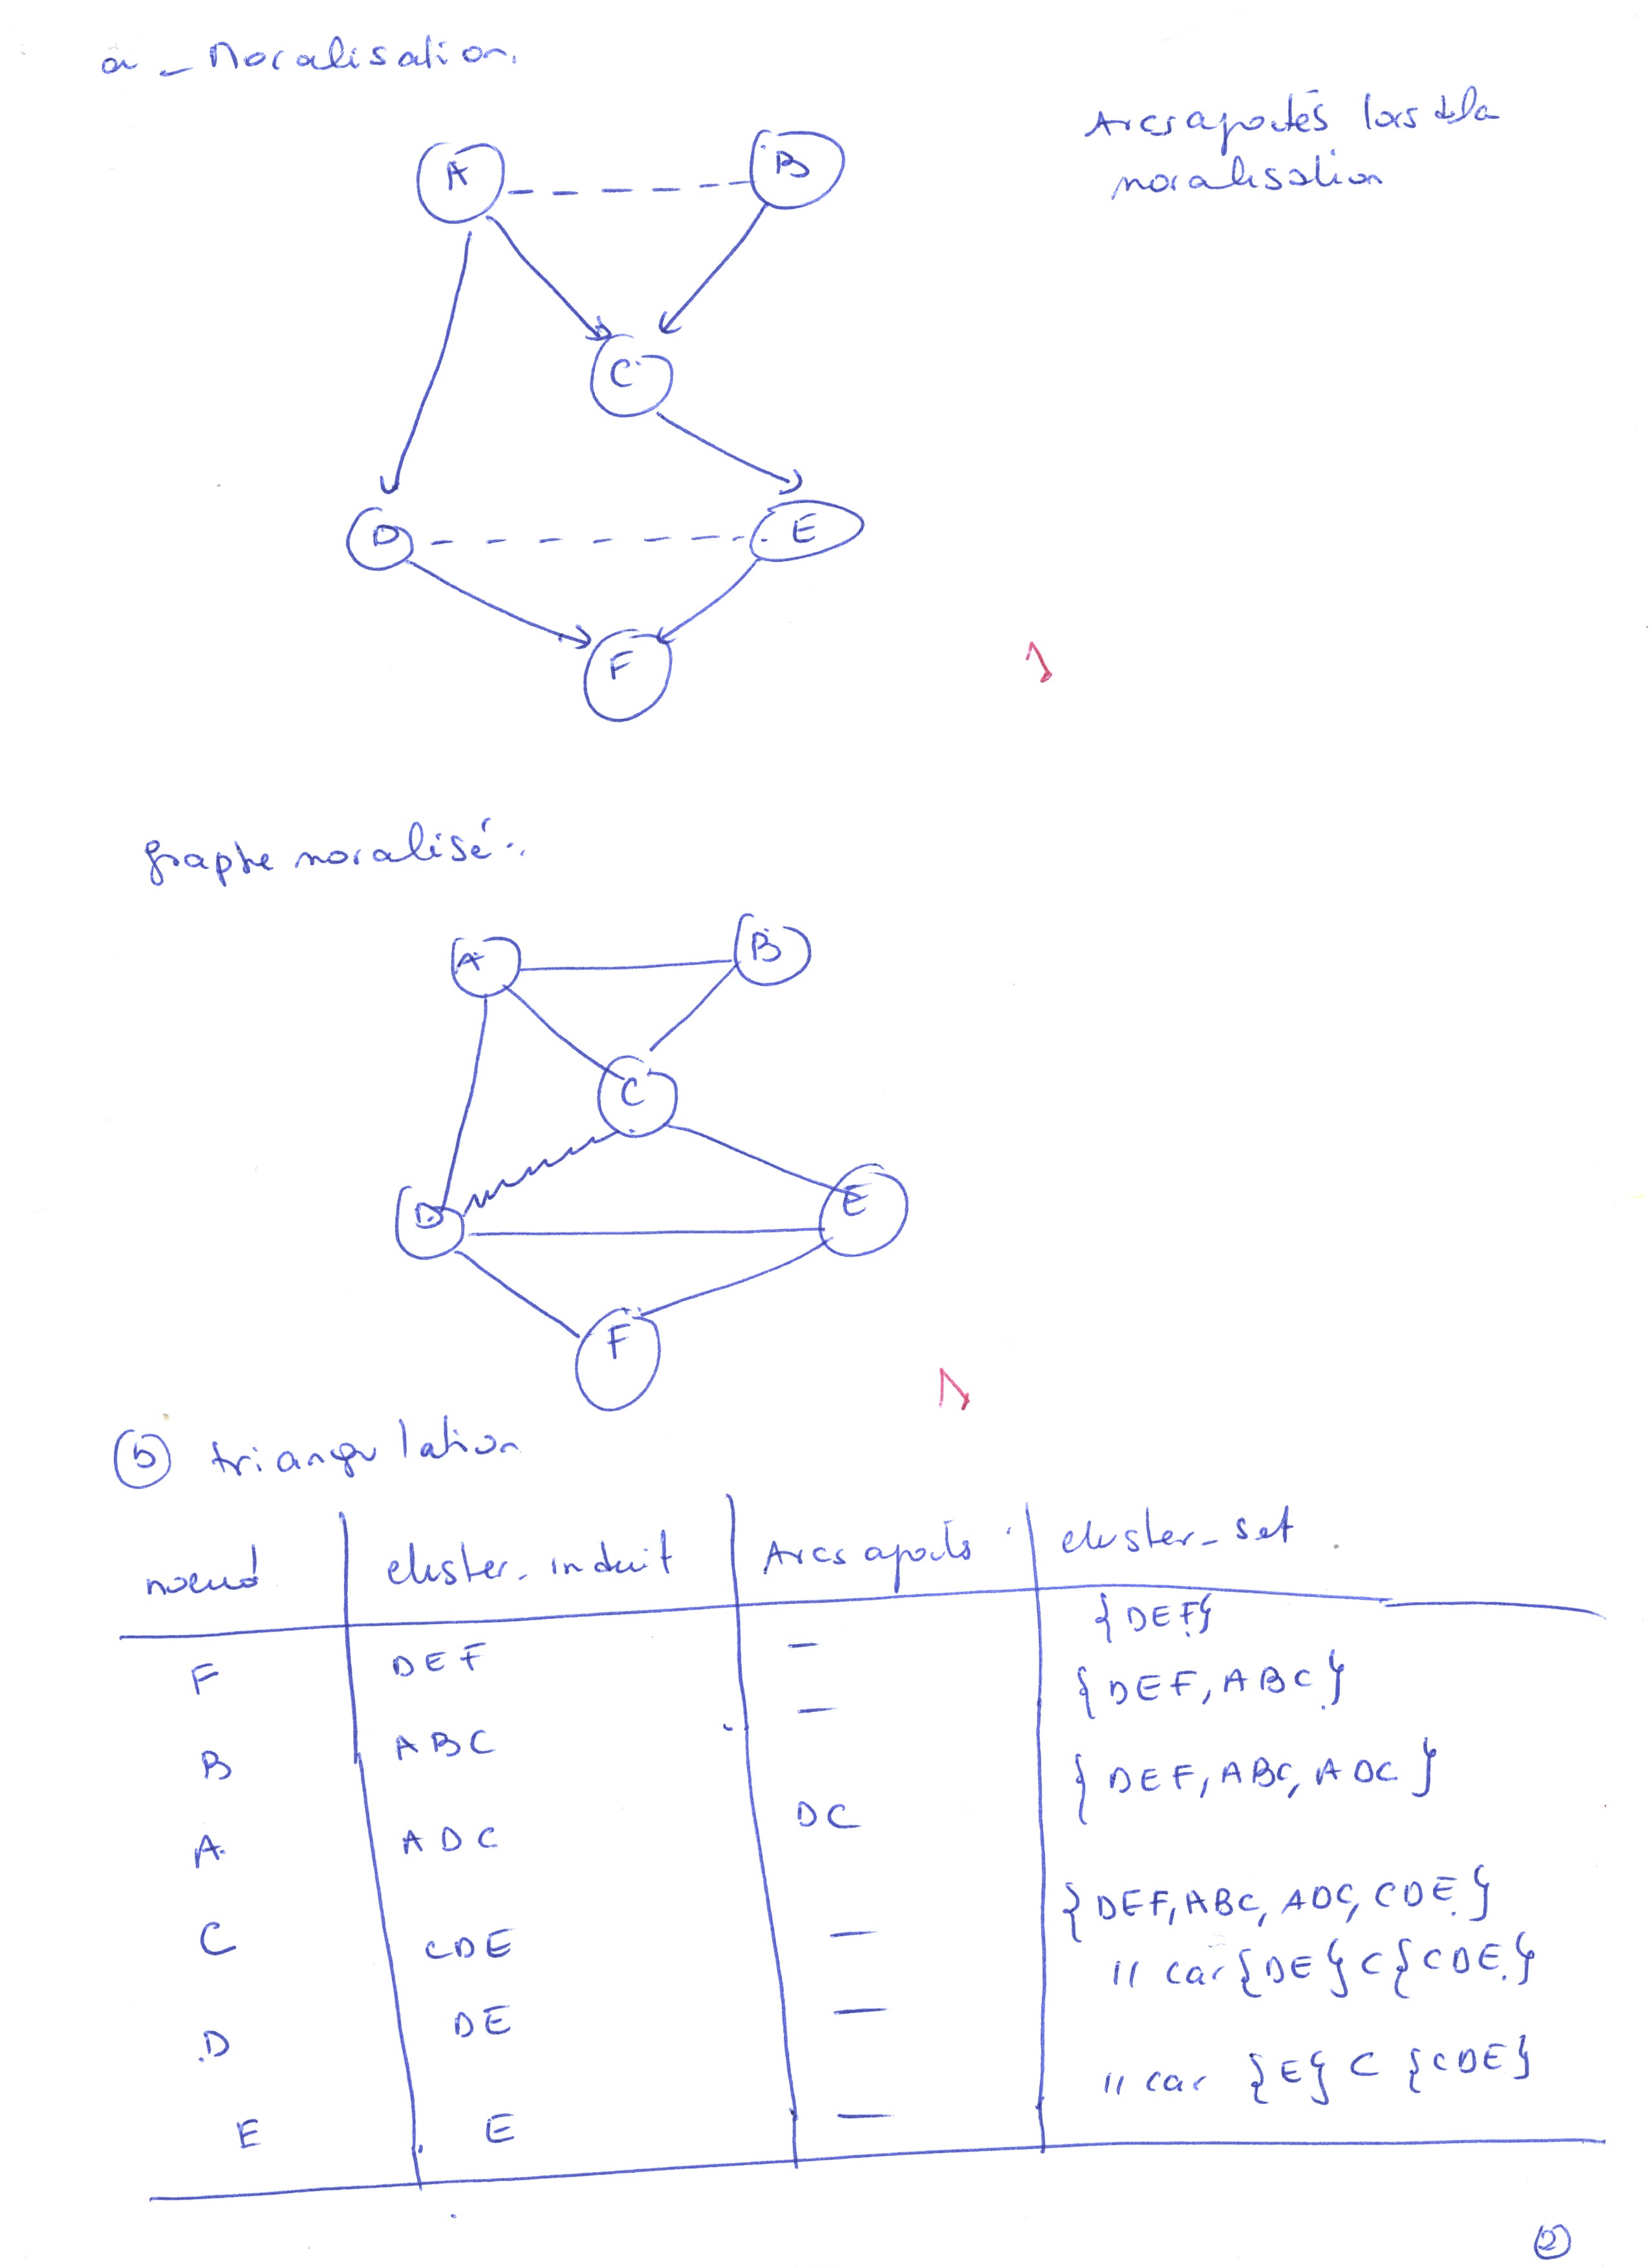 a - Moralisation.
Arcs ajoutés lors de la
moralisation
A
B
C
D
E
F
1
graphe moralisé:
A
B
C
D
E
F
1
b triangulation
noeud cluster-induit Arcs ajoutés cluster-set
F DEF - {DEF}
B ABC - {DEF, ABC}
A ADC DC {DEF, ABC, ADC}
C CDE - {DEF, ABC, ADC, CDE}
D DE - " car {DE} ⊂ {CDE}
E E - " car {E} ⊂ {CDE}
2